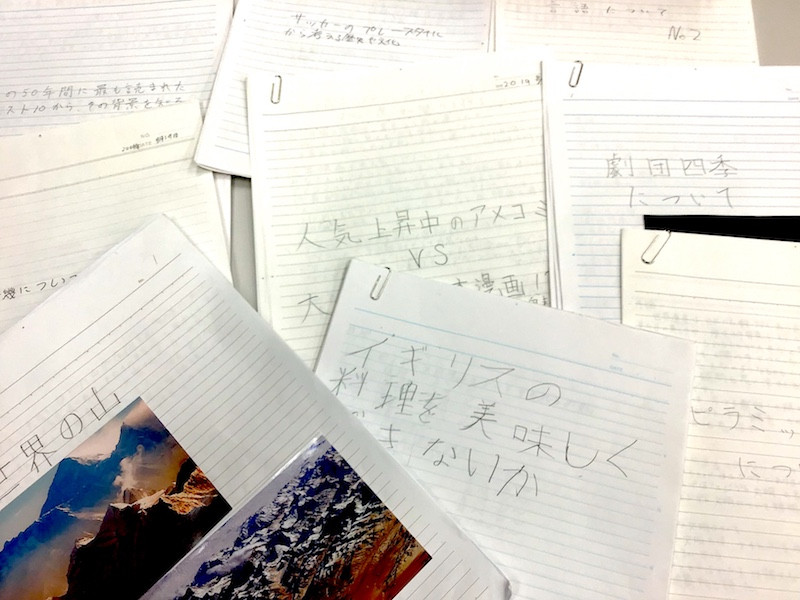 言語について
No.2
サッカーのプレースタイル
から考える歴史や文化
の50年間に最も読まれた
スト10から、その背景を
劇団四季
について
人気上昇中のアメコミ
VS
大 漫画!
について
イギリスの
料理を美味しく
きないか
ピラミッ
につ
世界の山